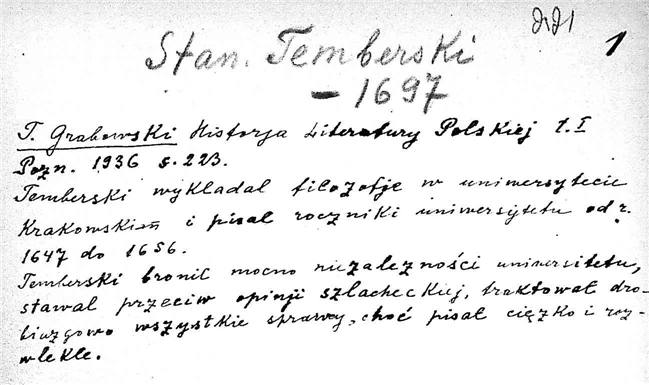 1
Stan. Temberski
– 1697
T. Grabowski Historja Literatury Polskiej t. I
Pozn. 1936 s. 223.
Temberski wykładał filozofję w uniwersytecie
Krakowskim i pisał roczniki uniwersytetu od r.
1647 do 1656.
Temberski bronił mocno niezależności uniwersitetu,
stawał przeciw opinji szlacheckiej, traktował dro-
biazgowo wszystkie sprawy, choć pisał ciężko i roz-
wlekle.